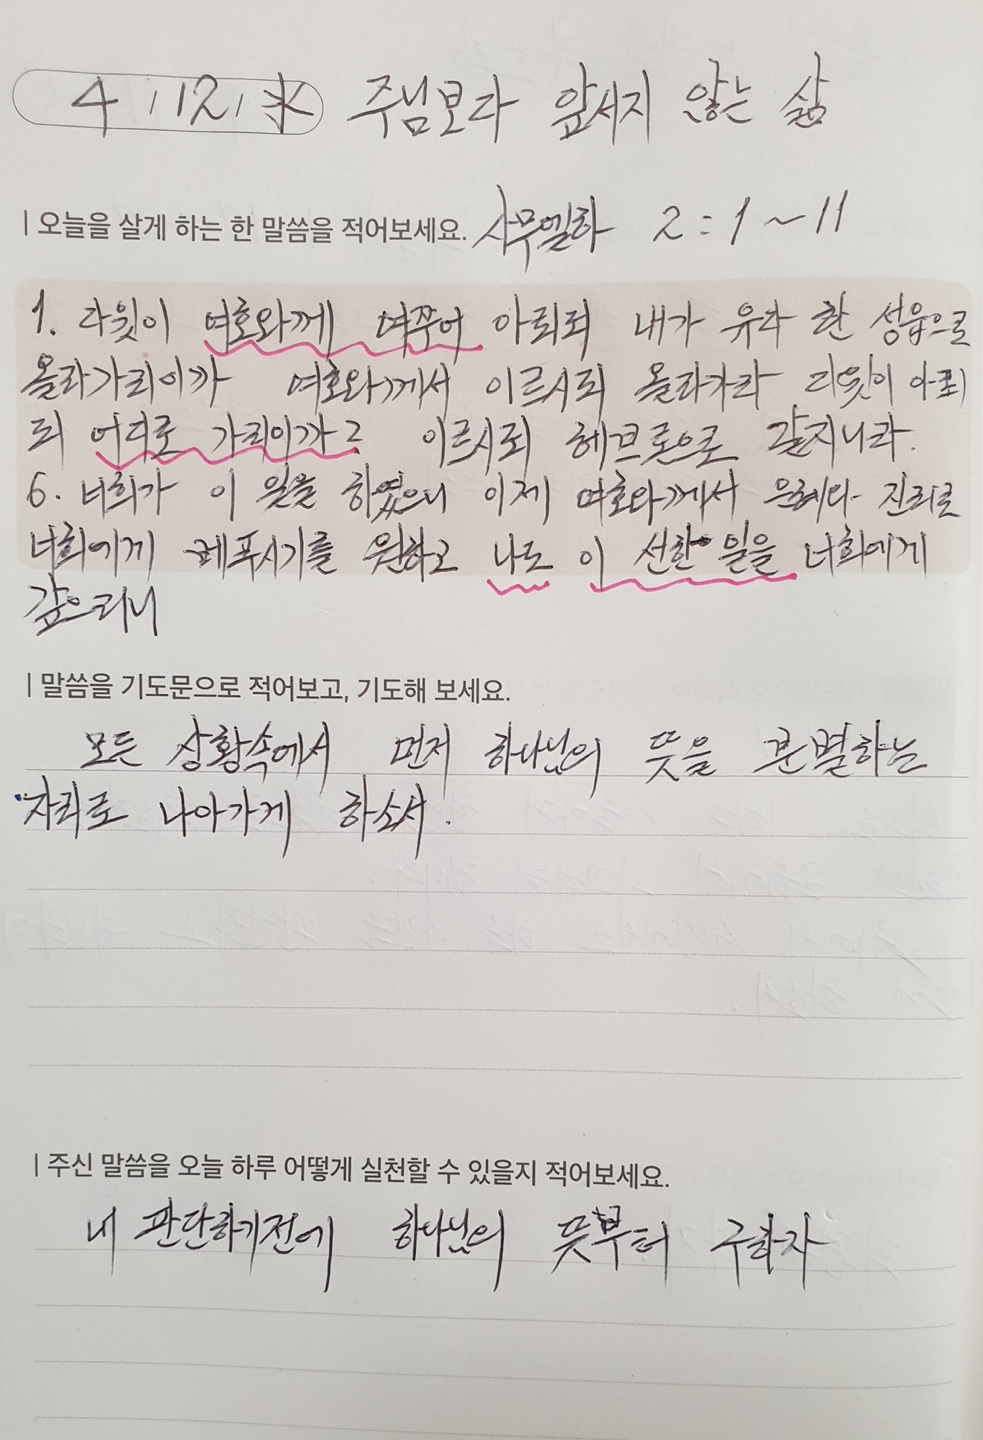 4 / 12 / 水 주님보다 앞서지 않는 삶
| 오늘을 살게 하는 한 말씀을 적어보세요. 사무엘하 2 : 1 ~ 11
1. 다윗이 여호와께 여쭈어 아뢰되 내가 유다 한 성읍으로
올라가리이까 여호와께서 이르시되 올라가라 다윗이 아뢰
되 어디로 가리이까? 이르시되 헤브론으로 갈지니라.
6. 너희가 이 일을 하였으니 이제 여호와께서 은혜와 진리로
너희에게 베푸시기를 원하고 나도 이 선한 일을 너희에게
갚으리니
| 말씀을 기도문으로 적어보고, 기도해 보세요.
모든 상황속에서 먼저 하나님의 뜻을 분별하는
자리로 나아가게 하소서.
| 주신 말씀을 오늘 하루 어떻게 실천할 수 있을지 적어보세요.
내 판단하기전에 하나님의 뜻부터 구하자